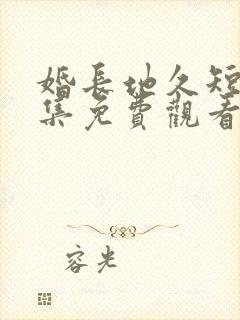 婚長地久短
集免費觀看
容光